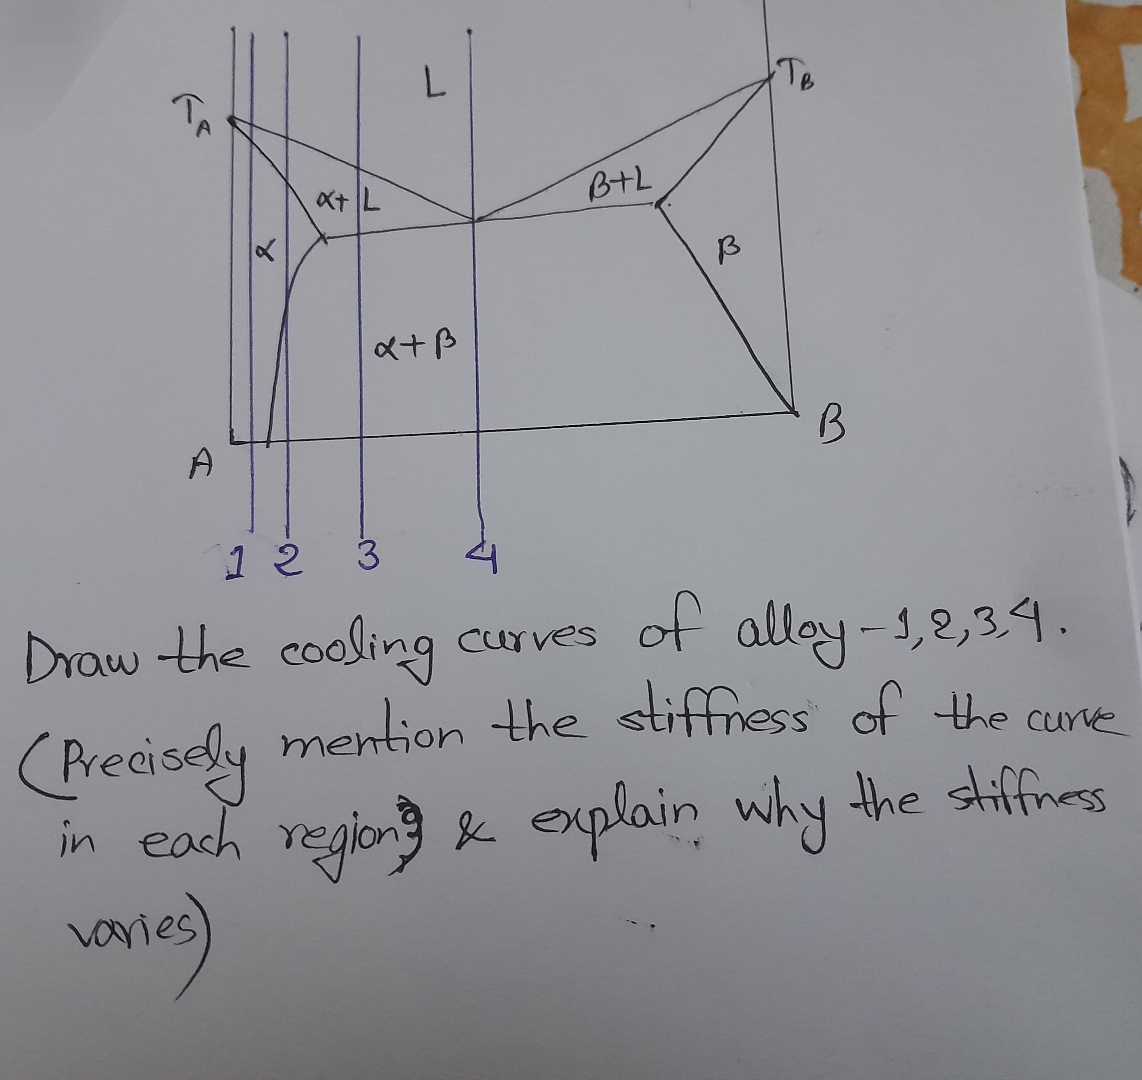 L
T_A
T_B
α+L
β+L
α
β
α+β
A
B
1 2 3 4
Draw the cooling curves of alloy-1,2,3,4.
(Precisely mention the stiffness of the curve
in each region, & explain why the stiffness
varies)